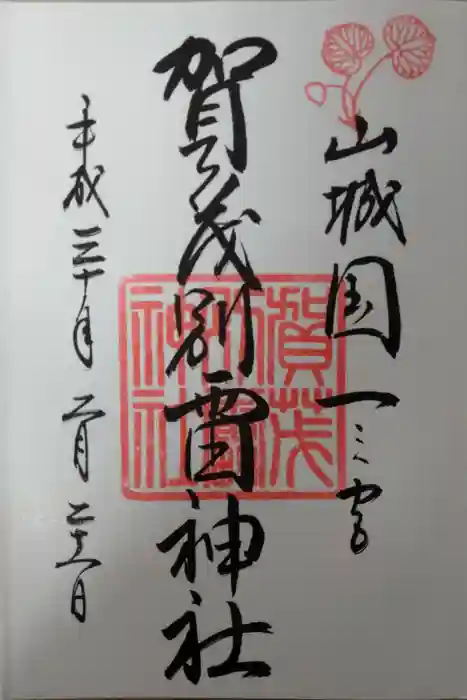 山城国一之宮
賀茂別雷神社
平成三十年二月二十日
賀茂
別雷
神社